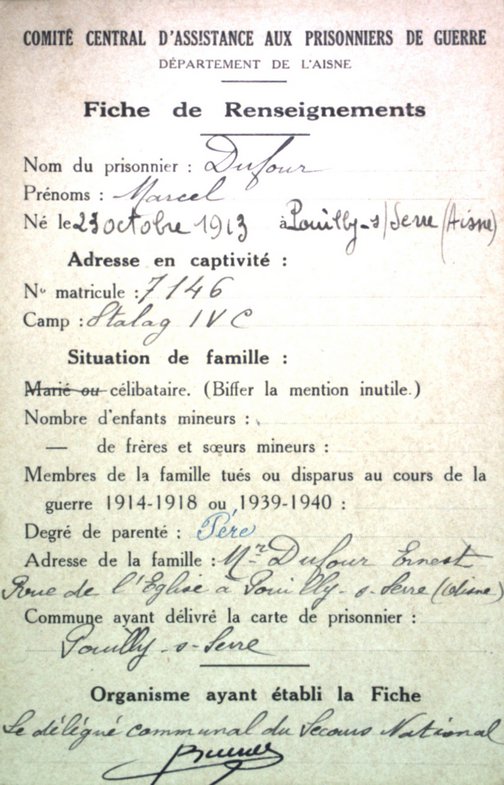 COMITÉ CENTRAL D'ASSISTANCE AUX PRISONNIERS DE GUERRE
DÉPARTEMENT DE L'AISNE
Fiche de Renseignements
Nom du prisonnier : Dufour
Prénoms : Marcel
Né le 23 octobre 1913 à Pouilly-s/Serre (Aisne)
Adresse en captivité :
N° matricule : 7146
Camp : Stalag IV C
Situation de famille :
Marié ou célibataire. (Biffer la mention inutile.)
Nombre d'enfants mineurs :
— de frères et sœurs mineurs :
Membres de la famille tués ou disparus au cours de la
guerre 1914-1918 ou 1939-1940 :
Degré de parenté : Père
Adresse de la famille : Mr Dufour Ernest
Rue de l'Eglise à Pouilly-s-Serre (Aisne)
Commune ayant délivré la carte de prisonnier :
Pouilly-s-Serre
Organisme ayant établi la Fiche
Le délégué communal du Secours National